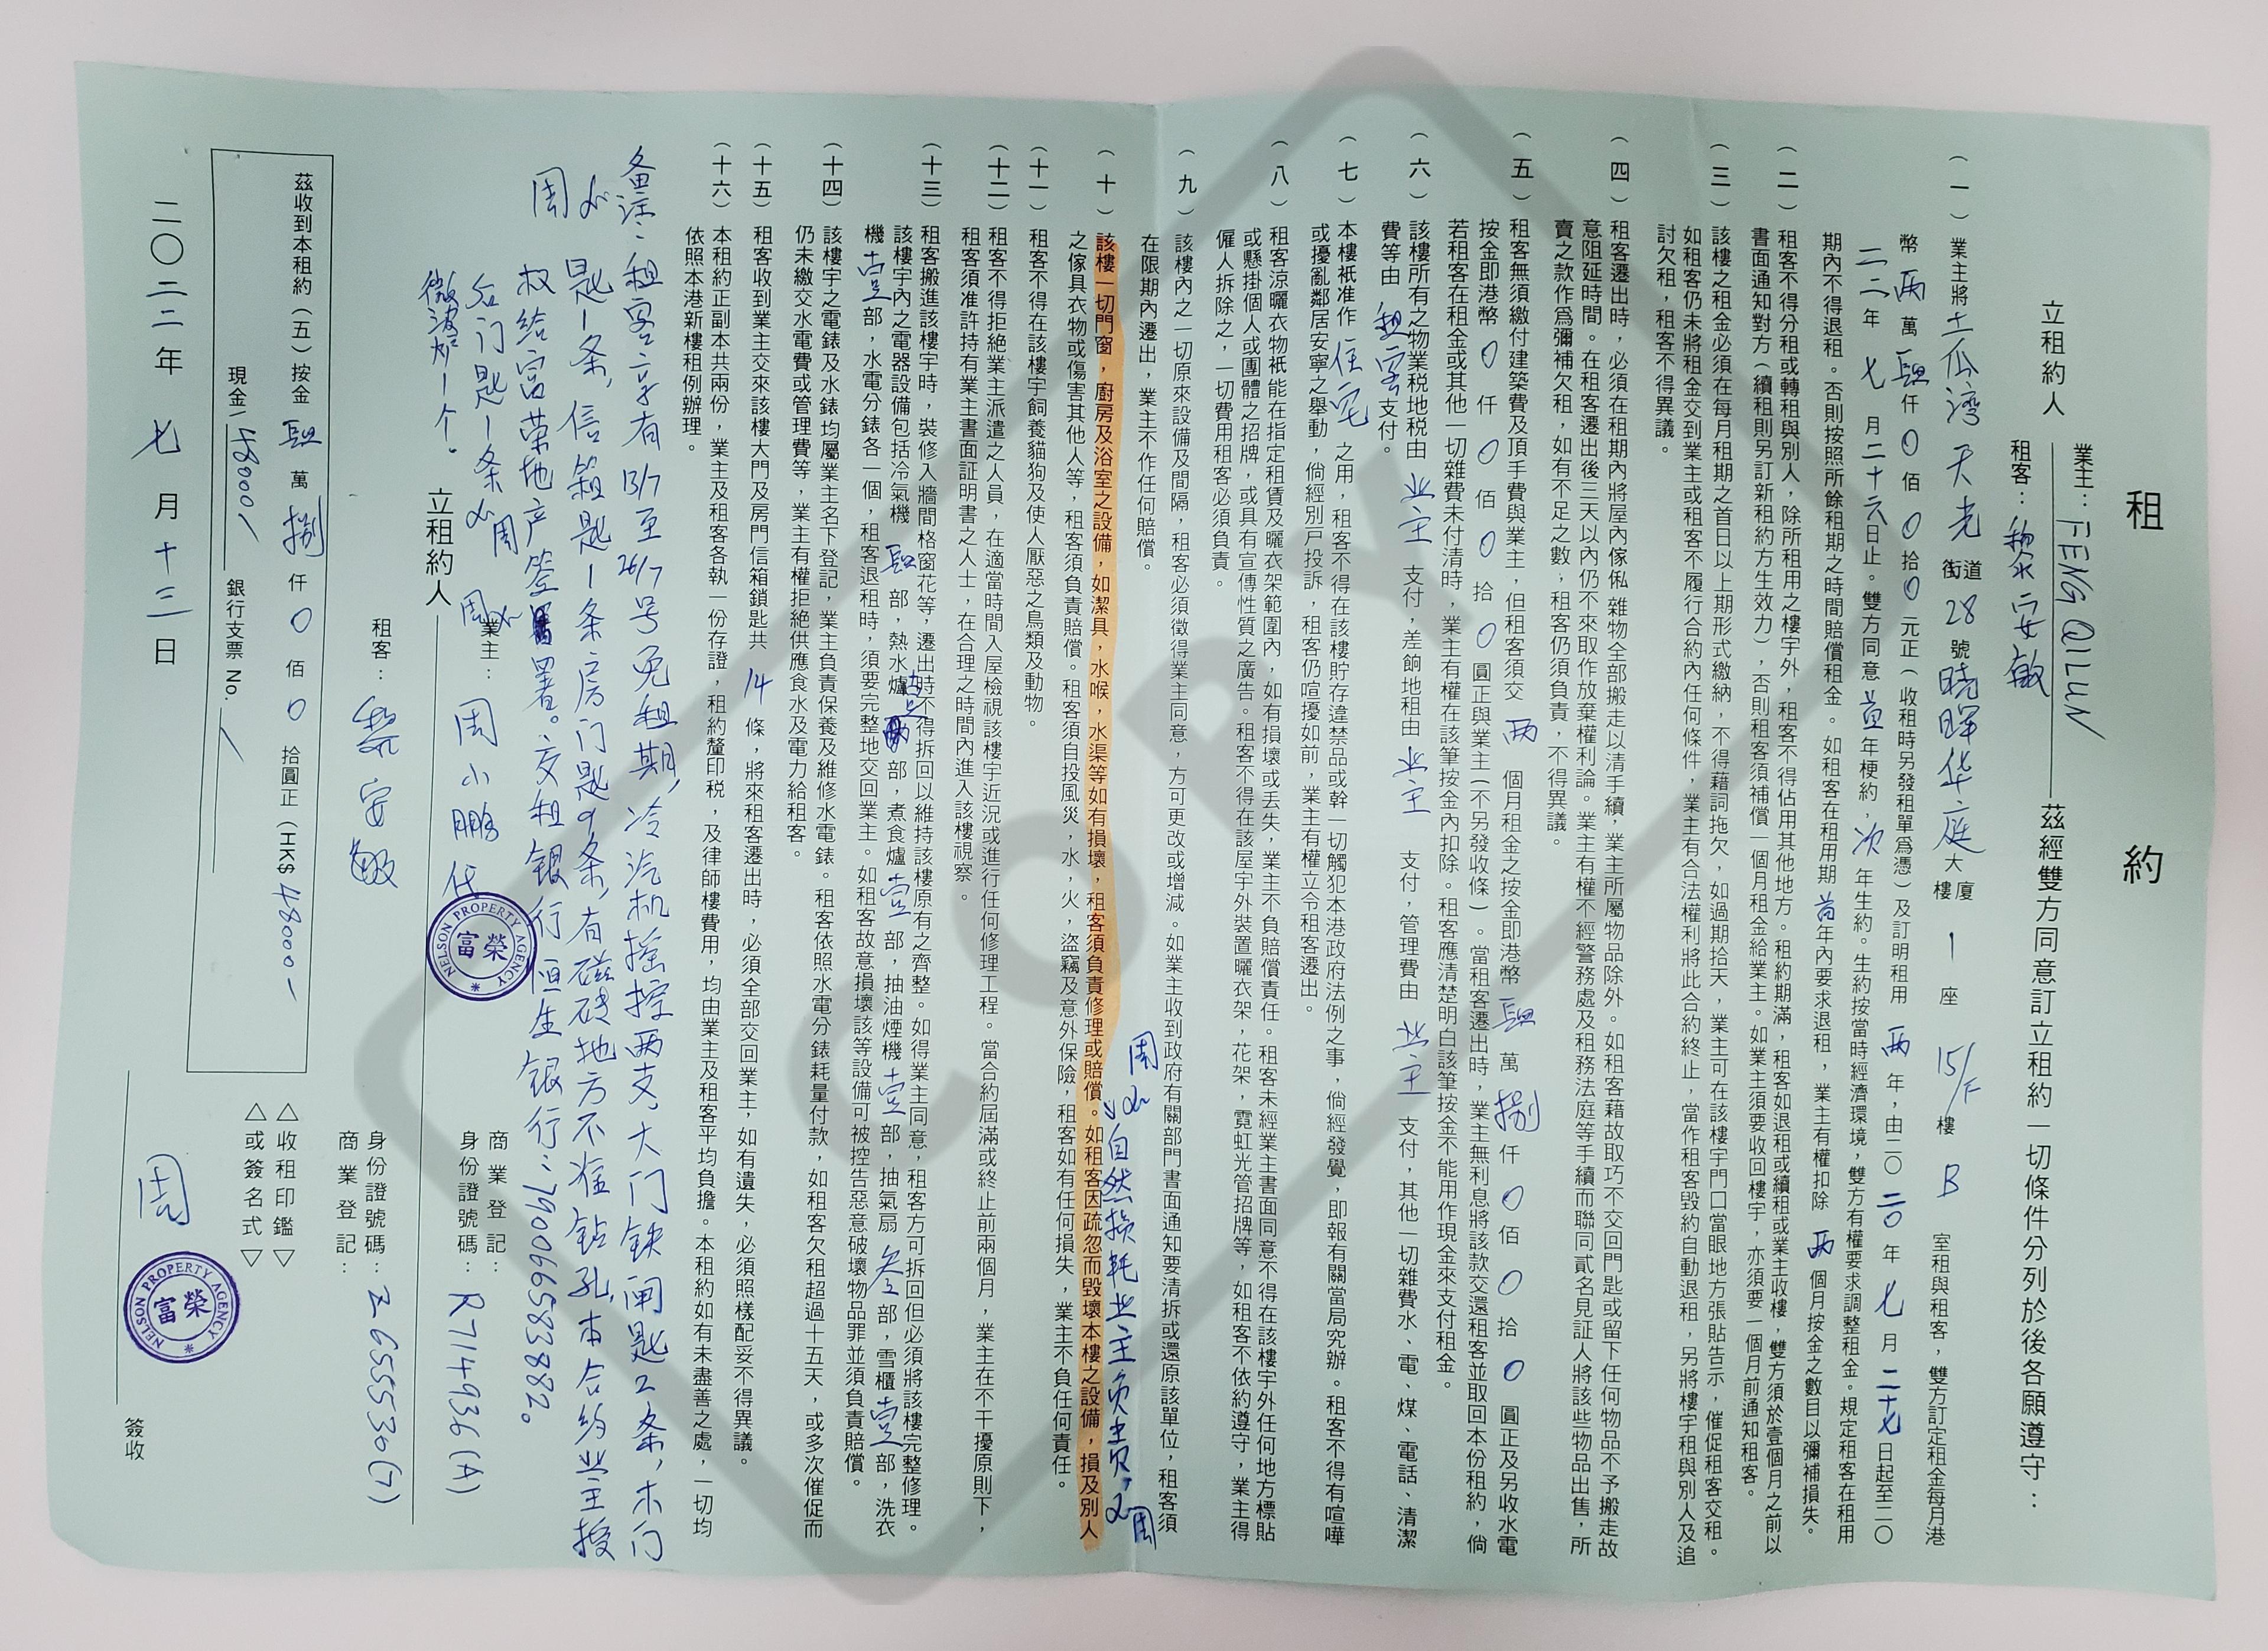 租約
立租約人
業主：FENG QILUN
租客：黎安敏
茲經雙方同意訂立租約一切條件分列於後各願遵守：
（一）業主將土瓜湾天光街道28號曉暉华庭大廈樓1座15/F樓B室租與租客，雙方訂定租金每月港
幣兩萬肆仟0佰0拾0元正（收租時另發租單爲憑）及訂明租用兩年，由二0二0年七月二十七日起至二0
二二年七月二十六日止。雙方同意首年梗約，次年生約。生約按當時經濟環境，雙方有權要求調整租金。規定租客在租用
期內不得退租。否則按照所餘租期之時間賠償租金。如租客在租用期首年內要求退租，業主有權扣除兩個月按金之數目以彌補損失。
（二）租客不得分租或轉租與別人，除所租用之樓宇外，租客不得佔用其他地方。租約期滿，租客如退租或續租或業主收樓，雙方須於壹個月之前以
書面通知對方（續租則另訂新租約方生效力），否則租客須補償一個月租金給業主。如業主須要收回樓宇，亦須要一個月前通知租客。
（三）該樓之租金必須在每月租期之首日以上期形式繳納，不得藉詞拖欠，如過期拾天，業主可在該樓宇門口當眼地方張貼告示，催促租客交租。
如租客仍未將租金交到業主或租客不履行合約內任何條件，業主有合法權利將此合約終止，當作租客毀約自動退租，另將樓宇租與別人及追
討欠租，租客不得異議。
（四）租客遷出時，必須在租期內將屋內傢俬雜物全部搬走以清手續，業主所屬物品除外。如租客藉故取巧不交回門匙或留下任何物品不予搬走故
意阻延時間。在租客遷出後三天以內仍不來取作放棄權利論。業主有權不經警務處及租務法庭等手續而聯同貳名見証人將該些物品出售，所
賣之款作爲彌補欠租，如有不足之數，租客仍須負責，不得異議。
（五）租客無須繳付建築費及頂手費與業主，但租客須交兩個月租金之按金即港幣肆萬捌仟0佰0拾0圓正及另收水電
按金即港幣0仟0佰0拾0圓正與業主（不另發收條）。當租客遷出時，業主無利息將該款交還租客並取回本份租約，倘
若租客在租金或其他一切雜費未付清時，業主有權在該筆按金內扣除。租客應清楚明白該筆按金不能用作現金來支付租金。
（六）該樓所有之物業税地税由业主支付，差餉地租由业主支付，管理費由业主支付，其他一切雜費水、電、煤、電話、清潔
費等由租客支付。
（七）本樓衹准作住宅之用，租客不得在該樓貯存違禁品或幹一切觸犯本港政府法例之事，倘經發覺，即報有關當局究辦。租客不得有喧嘩
或擾亂鄰居安寧之舉動，倘經別戸投訴，租客仍喧擾如前，業主有權立令租客遷出。
（八）租客涼曬衣物衹能在指定租賃及曬衣架範圍內，如有損壞或丟失，業主不負賠償責任。租客未經業主書面同意不得在該樓宇外任何地方標貼
或懸掛個人或團體之招牌，或具有宣傳性質之廣告。租客不得在該屋宇外裝置曬衣架，花架，霓虹光管招牌等，如租客不依約遵守，業主得
僱人拆除之，一切費用租客必須負責。
（九）該樓內之一切原來設備及間隔，租客必須徵得業主同意，方可更改或增減。如業主收到政府有關部門書面通知要清拆或還原該單位，租客須
在限期內遷出，業主不作任何賠償。
周
自然損耗业主负责，周
（十）該樓一切門窗，廚房及浴室之設備，如潔具，水喉，水渠等如有損壞，租客須負責修理或賠償。如租客因疏忽而毀壞本樓之設備，損及別人
之傢具衣物或傷害其他人等，租客須負責賠償。租客須自投風災，水，火，盜竊及意外保險，租客如有任何損失，業主不負任何責任。
（十一）租客不得在該樓宇飼養貓狗及使人厭惡之鳥類及動物。
（十二）租客不得拒絶業主派遣之人員，在適當時間入屋檢視該樓宇近況或進行任何修理工程。當合約屆滿或終止前兩個月，業主在不干擾原則下，
租客須准許持有業主書面証明書之人士，在合理之時間內進入該樓視察。
（十三）租客搬進該樓宇時，裝修入牆間格窗花等，遷出時不得拆回以維持該樓原有之齊整。如得業主同意，租客方可拆回但必須將該樓完整修理。
該樓宇內之電器設備包括冷氣機肆部，熱水爐壹部，煮食爐壹部，抽油煙機壹部，抽氣扇叁部，雪櫃壹部，洗衣
機壹部，水電分錶各一個，租客退租時，須要完整地交回業主。如租客故意損壞該等設備可被控告惡意破壞物品罪並須負責賠償。
（十四）該樓宇之電錶及水錶均屬業主名下登記，業主負責保養及維修水電錶。租客依照水電分錶耗量付款，如租客欠租超過十五天，或多次催促而
仍未繳交水電費或管理費等，業主有權拒絶供應食水及電力給租客。
（十五）租客收到業主交來該樓大門及房門信箱鎖匙共14條，將來租客遷出時，必須全部交回業主，如有遺失，必須照樣配妥不得異議。
（十六）本租約正副本共兩份，業主及租客各執一份存證，租約釐印税，及律師樓費用，均由業主及租客平均負擔。本租約如有未盡善之處，一切均
依照本港新樓租例辦理。
备注：租客享有13/7至26/7号免租期，冷汽机摇控两支，大门铁闸匙2条，木门
匙1条，信箱匙1条房门匙9条，有磁砖地方不准钻孔，本合约业主授
周
权给富荣地产签署。交租银行恒生银行：790066583882。
后门匙1条 周
微波炉1个。
立租約人
周
業主：周小鹏代
商業登記：
身份證號碼：R714936(A)
富榮
NELSON PROPERTY AGENCY
租客：黎安敏
身份證號碼：Z655530(7)
商業登記：
茲收到本租約（五）按金肆萬捌仟0佰0拾圓正（HK$ 48000-
現金 48000/ 銀行支票 No. /
△收租印鑑▽
△或簽名式▽
二〇二二年七月十三日
周
富榮
NELSON PROPERTY AGENCY
簽收
COPY